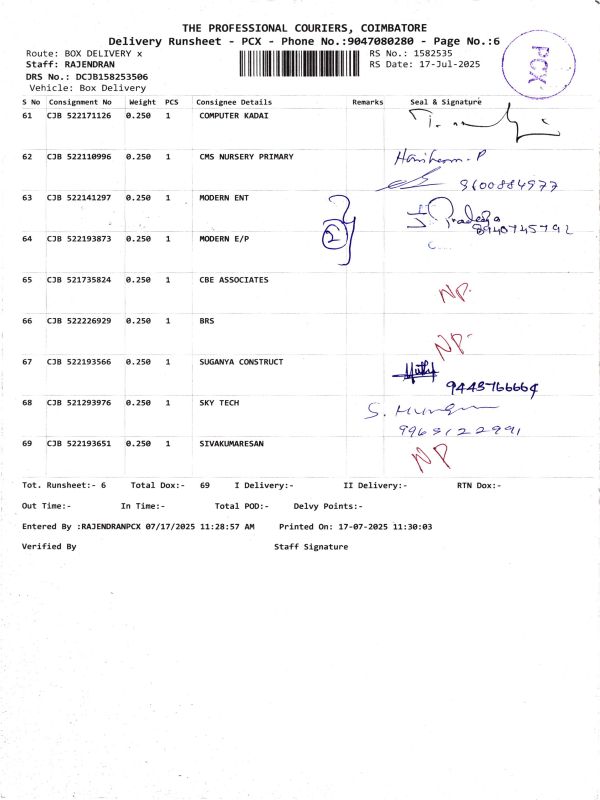 THE PROFESSIONAL COURIERS, COIMBATORE
Delivery Runsheet - PCX - Phone No.:9047080280 - Page No.:6
Route: BOX DELIVERY x RS No.: 1582535
Staff: RAJENDRAN RS Date: 17-Jul-2025
DRS No.: DCJB158253506
Vehicle: Box Delivery
PCX
S No Consignment No Weight PCS Consignee Details Remarks Seal & Signature
61 CJB 522171126 0.250 1 COMPUTER KADAI
62 CJB 522110996 0.250 1 CMS NURSERY PRIMARY
9600884977
63 CJB 522141297 0.250 1 MODERN ENT
8940745792
64 CJB 522193873 0.250 1 MODERN E/P 2
65 CJB 521735824 0.250 1 CBE ASSOCIATES NP.
66 CJB 522226929 0.250 1 BRS NP.
67 CJB 522193566 0.250 1 SUGANYA CONSTRUCT
68 CJB 521293976 0.250 1 SKY TECH
69 CJB 522193651 0.250 1 SIVAKUMARESAN NP
Tot. Runsheet:- 6 Total Dox:- 69 I Delivery:- II Delivery:- RTN Dox:-
Out Time:- In Time:- Total POD:- Delvy Points:-
Entered By :RAJENDRANPCX 07/17/2025 11:28:57 AM Printed On: 17-07-2025 11:30:03
Verified By Staff Signature